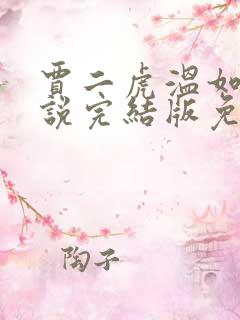 賈二虎溫如
說完結版免
陶子